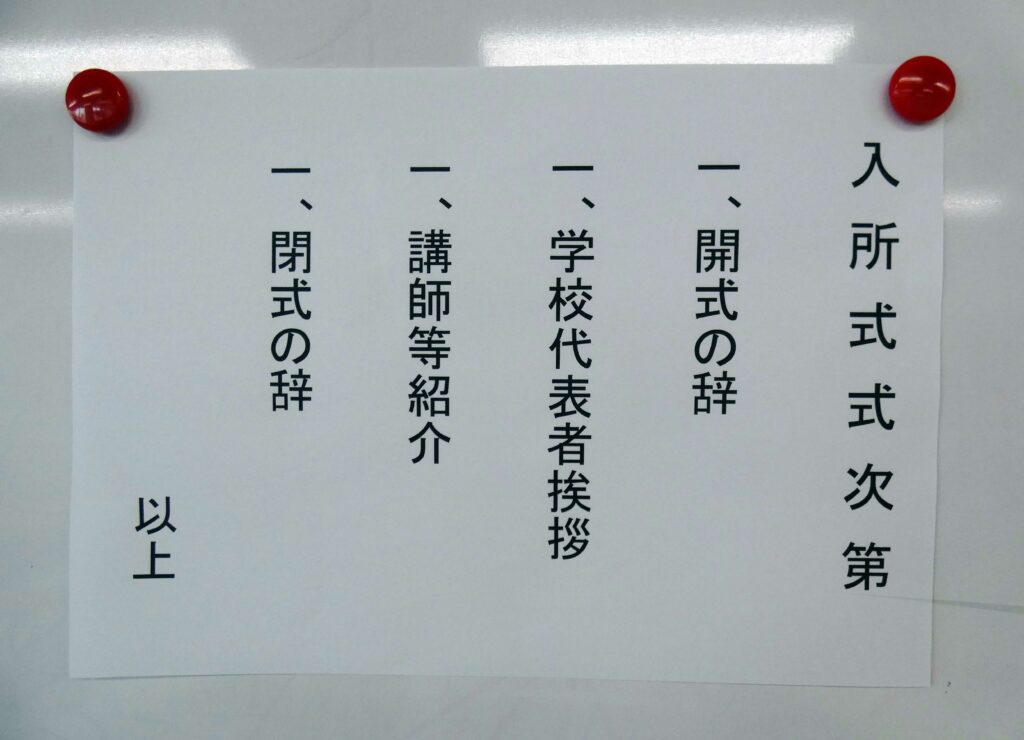 入所式式次第
一、開式の辞
一、学校代表者挨拶
一、講師等紹介
一、閉式の辞
以上